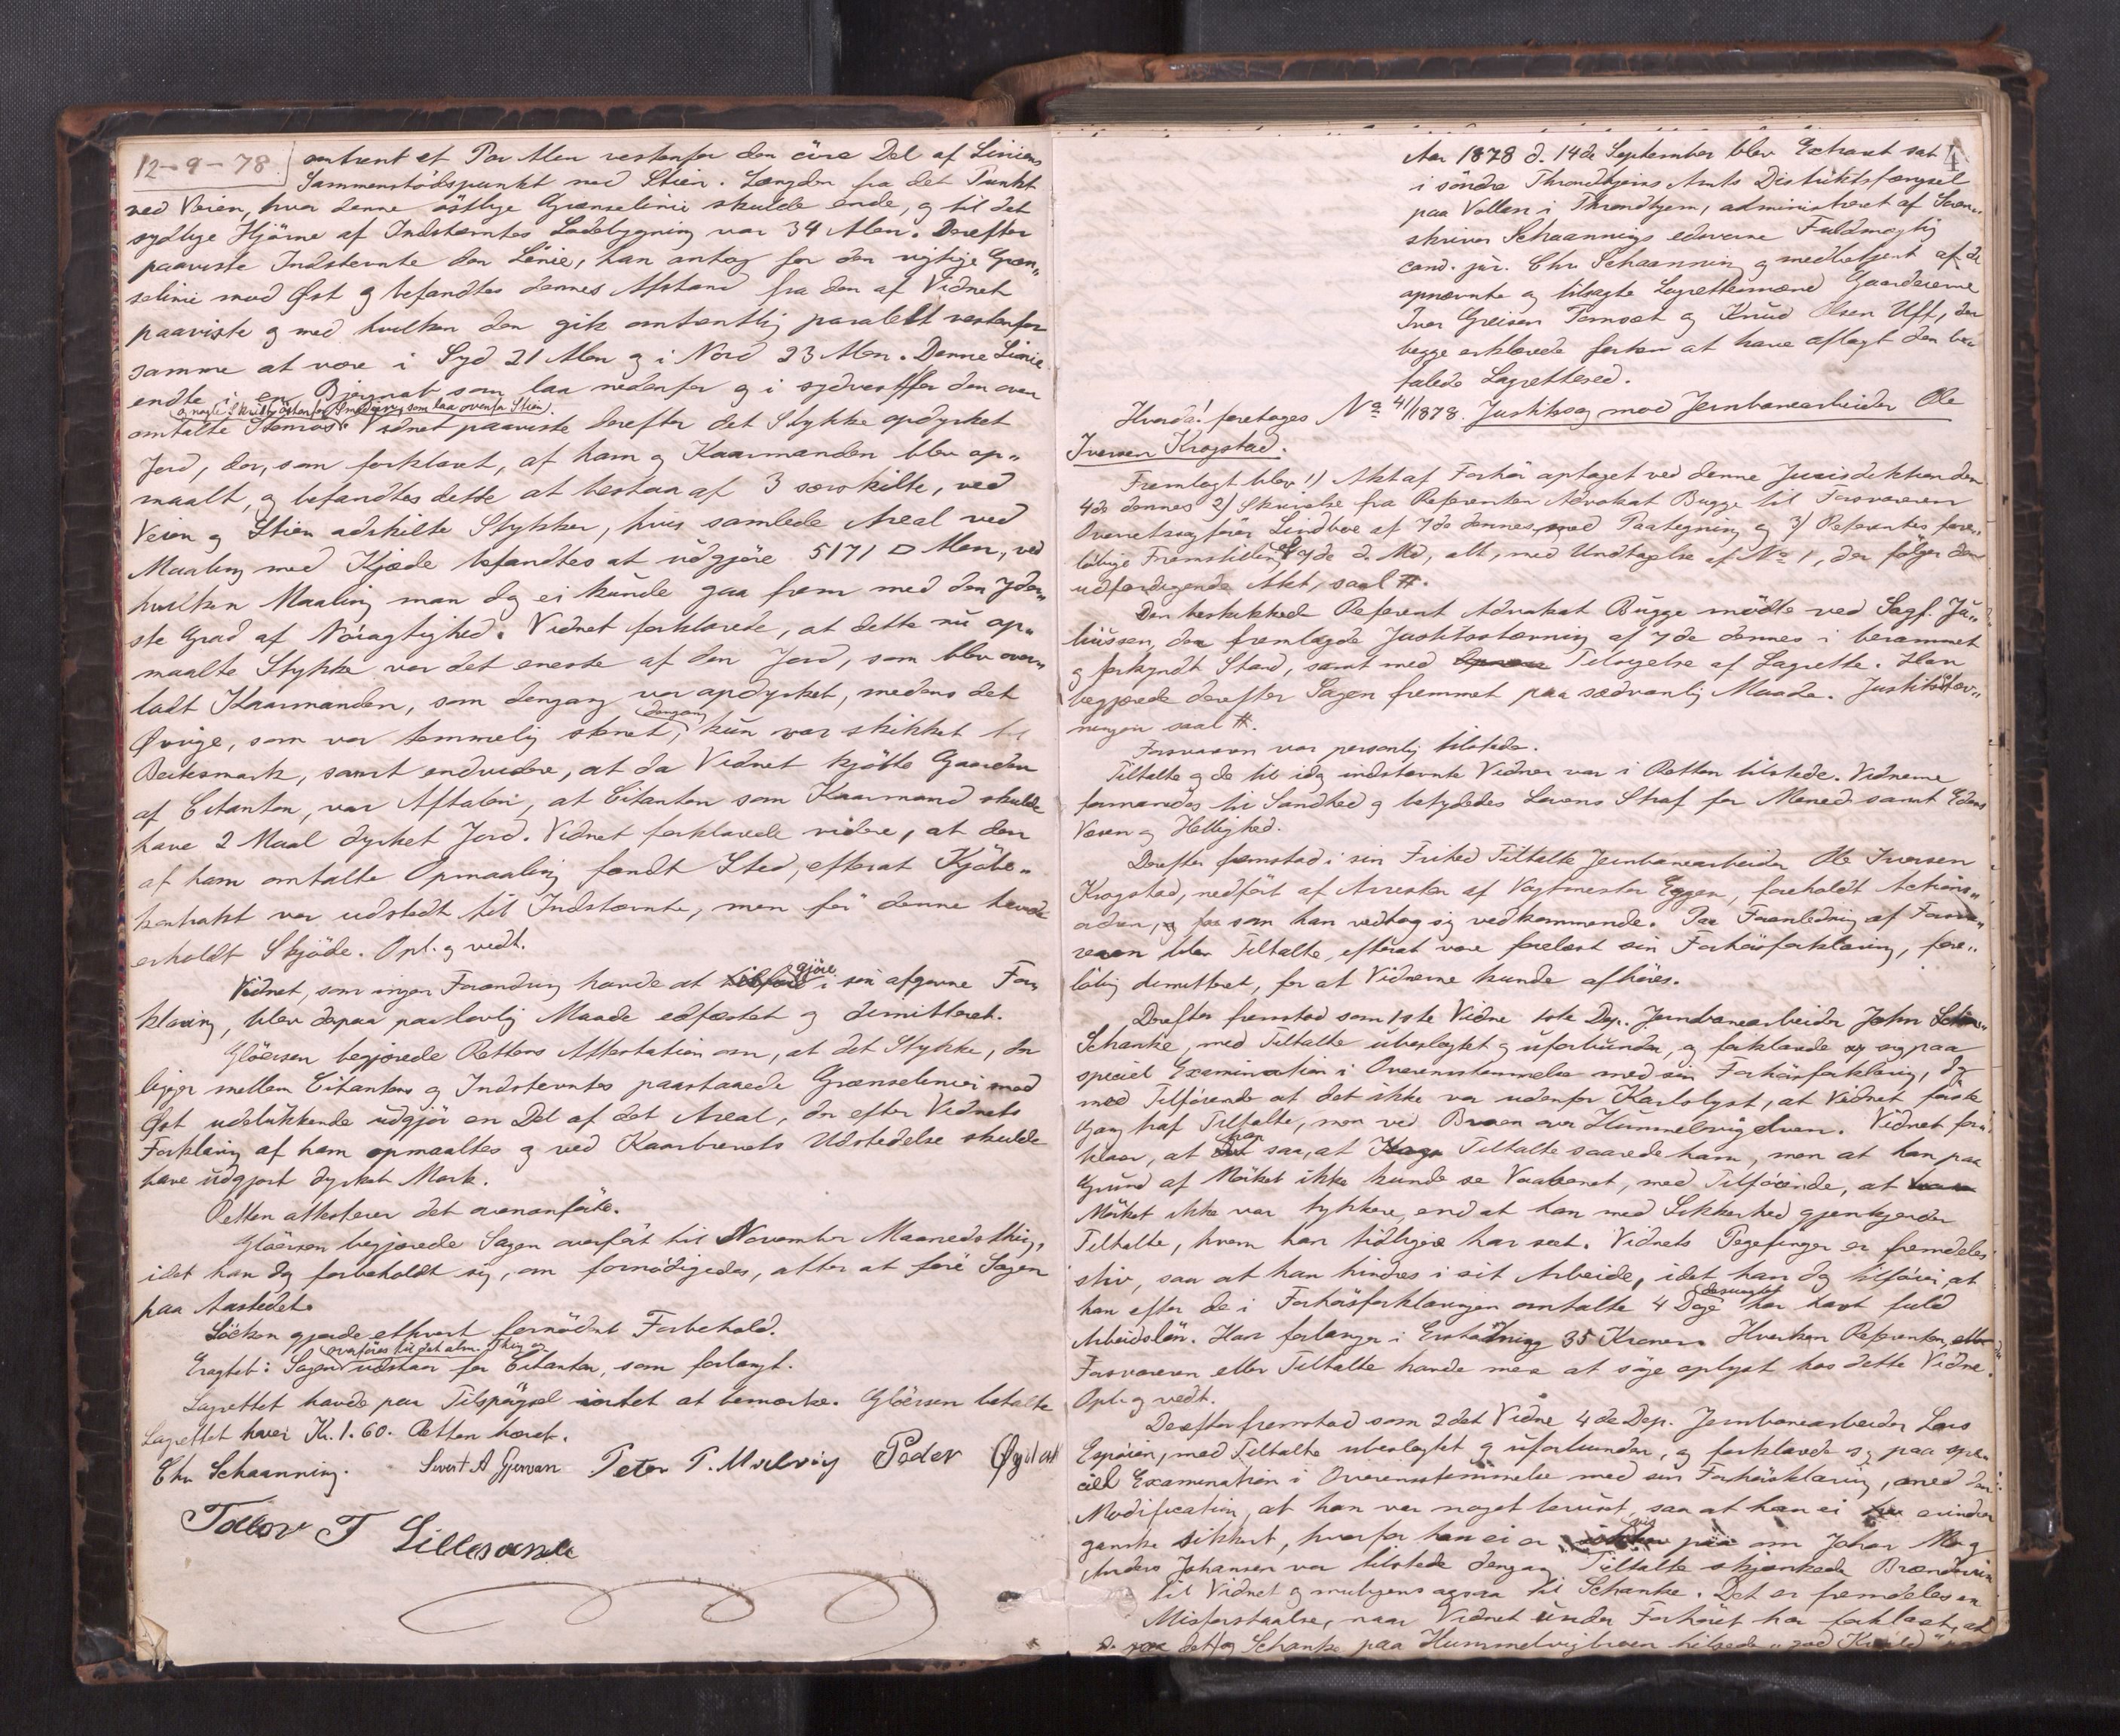 12-9-78
omtrent et Par Alen vestenfor den övre Del af Liniens
Sammenstödspunkt med Stien. Længden fra det Punkt
ved Veien, hvor denne östlige Grænselinie skulde ende, og til det
sydlige Hjörne af Indstævntes Ladebygning var 34 Alen. Derefter
paaviste Indstevnte den Linie, han antog for den rigtige Græn„
selinie mod Øst og befandtes dennes Afstand fra den af Vidnet
paaviste og med hvilken den gik omtentlig paralelt vestenfor
samme at være i Syd 21 Alen og i Nord 23 Alen. Denne Linie
endte i en som laa nedenfor og i sydvest for den oven
og nogle Skridt östenfor som laa ovenfor Stien.
omtalte Stenrös. Vidnet paaviste derefter det Stykke opdyrket
Jord, der, som forklaret, af ham og Kaarmanden blev op„
maalt, og befandtes dette at bestaa af 3 særskilte, ved
Veien og Stien adskilte Stykker, hvis samlede Areal ved
Maaling med Kjæde befandtes at udgjöre 5171 □ Alen, ved
hvilken Maaling man dog ei kunde gaa frem med den yder„
ste Grad af Nöiagtighed. Vidnet forklarede, at dette nu op„
maalte Stykke var det eneste af den Jord, som blev over„
ladt Kaarmanden, som dengang var opdyrket, medens det
Øvrige, som var temmelig stenet, dengang kun var skikket til
Beitesmark, samt endvidere, at da Vidnet kjöbte Gaarden
af Citanten, var Aftalen, at Citanten som Kaarmand skulde
have 2 Maal dyrket Jord. Vidnet forklarede videre, at den
af ham omtalte Opmaaling fandt Sted, efterat Kjöbe„
kontrakt var udstedt til Indstævnte, men för denne havde
erholdt Skjöde. Opl. og vedt.
Vidnet, som ingen Forandring havde at gjöre i sin afgivne For„
klaring, blev derpaa paa lovlig Maade edfæstet og dimitteret.
Glöersen begjærede Rettens Attestation om, at det Stykke, der
ligger mellem Citantens og Indstevntes paastaaede Grænselinier mod
Øst udelukkende udgjör en Del af det Areal, der efter Vidnets
Forklaring af ham opmaaltes og ved Kaarbrevets Udstedelse skulde
have udgjort dyrket Mark.
Retten attesterer det ovenanförte.
Glöersen begjærede Sagen overfört til November Maanedsthing,
idet han dog forbeholdt sig, om fornödigedes, atter at före Sagen
paa Aastedet.
Löcken gjorde ethvert fornödent Forbehold.
Eragtet: Sagen overföres til det alm. Thing og udstaar for Citanten, som forlangt.
Lagrettet havde paa Tilspörgsel intet at bemærke. Glöersen betalte
Lagrettet hver Kr. 1.60. Retten hævet.
Chr Schaanning. Sivert A Gjervan Peter P. Mulvig Peder
Tollov T Lillesand
4
Aar 1878 d. 14de September blev Extraret sat
i söndre Throndhjems Amts Distriktsfængsel
paa Vollan i Throndhjem, administreret af Soren„
skriver Schaannings edsvorne Fuldmægtig
cand. jur. Chr Schaanning og medbetjent af de
opnævnte og tilsagte Lagrettesmænd Gaardeierne
Iver Greisen Tomset og Knud Olsen Uff, der
begge erklærede forhen at have aflagt den be„
falede Lagretteséd.
Hvorda! foretoges No 41/1878. Justitssag mod Jernbanearbeider Ole
Iversen Krogstad.
Fremlagt blev 1) Akt af Forhör optaget ved denne Jurisdiktion den
4de dennes 2) Skrivelse fra Referenten Advokat Bugge til Forsvareren
Overretssagförer Lindboe af 7de dennes, med Paategning og 3) Referentes fore„
löbige Fremstilling af 7de d. Md, alt, med Undtagelse af No 1, der fölger den
udfærdigende Akt, saal #.
Den beskikkede Referent Advokat Bugge mödte ved Sagf. Ju„
liussen, der fremlagde Justitsstævning af 7de dennes i berammet
og forkyndt Stand, samt med Tilsigelse af Lagrette. Han
begjærede derefter Sagen fremmet paa sædvanlig Maade. Justitsstæv„
ningen saal #.
Forsvareren var personlig tilstede.
Tiltalte og de til idag indstævnte Vidner var i Retten tilstede. Vidnerne
formanedes til Sandhed og betydedes Lovens Straf for Mened samt Edens
Væsen og Hellighed.
Derefter fremstod i sin Frihed Tiltalte Jernbanearbeider Ole Iversen
Krogstad, nedfört af Arresten af Vagtmester Eggen, foreholdt Actions„
ordren, som han vedtog sig vedkommende. Paa Foranledning af Forsva„
reren blev Tiltalte, efterat være forelæst sin Forhörsforklaring, fore„
löbig dimitteret, for at Vidnerne kunde afhöres.
Derefter fremstod som 1ste Vidne 1ste Dep. Jernbanearbeider John
Schanke, med Tiltalte ubeslægtet og uforbunden, og forklarede sig paa
speciel Examination i Overensstemmelse med sin Forhörsforklaring, dog
med Tilförende at det ikke var udenfor Karlslyst, at Vidnet förste
Gang traf Tiltalte, men ved Broen over Hummelvigelven. Vidnet for„
klarer, at han saa, at Tiltalte saarede ham, men at han paa
Grund af Mörket ikke kunde se Vaabenet, med Tilföiende, at
Mörket ikke var tykkere, end at han med Sikkerhed gjenkjender
Tiltalte, hvem han tidligere har seet. Vidnets Pegefinger er fremdeles
stiv, saa at han hindres i sit Arbeide, idet han dog tilföier, at
han efter de i Forhörsforklaringen omtalte 4 Dage desuagtet har havt fuld
Arbeidslön. Han forlanger i Erstatning 35 Kroner. Hverken Referenten,
Forsvareren eller Tiltalte havde mere at söge oplyst hos dette Vidne.
Opl. og vedt.
Derefter fremstod som 2det Vidne 4de Dep. Jernbanearbeider Lars
Espöien, med Tiltalte ubeslægtet og uforbunden, og forklarede sig paa spe„
ciel Examination i Overensstemmelse med sin Forhörsforklaring, med den
Modification, at han var noget beruset, saa at han ei erindrer
ganske sikkert, hvorfor han ei er vis paa om Johan Moe og
Anders Johansen var tilstede dengang Tiltalte skjænkede Brændevin
til Vidnet og muligens ogsaa til Schanke. Det er fremdeles en
Misforstaaelse, naar Vidnet under Forhöret har forklaret, at
det og Schanke paa Hummelvigbroen hilsede „god Kveld"